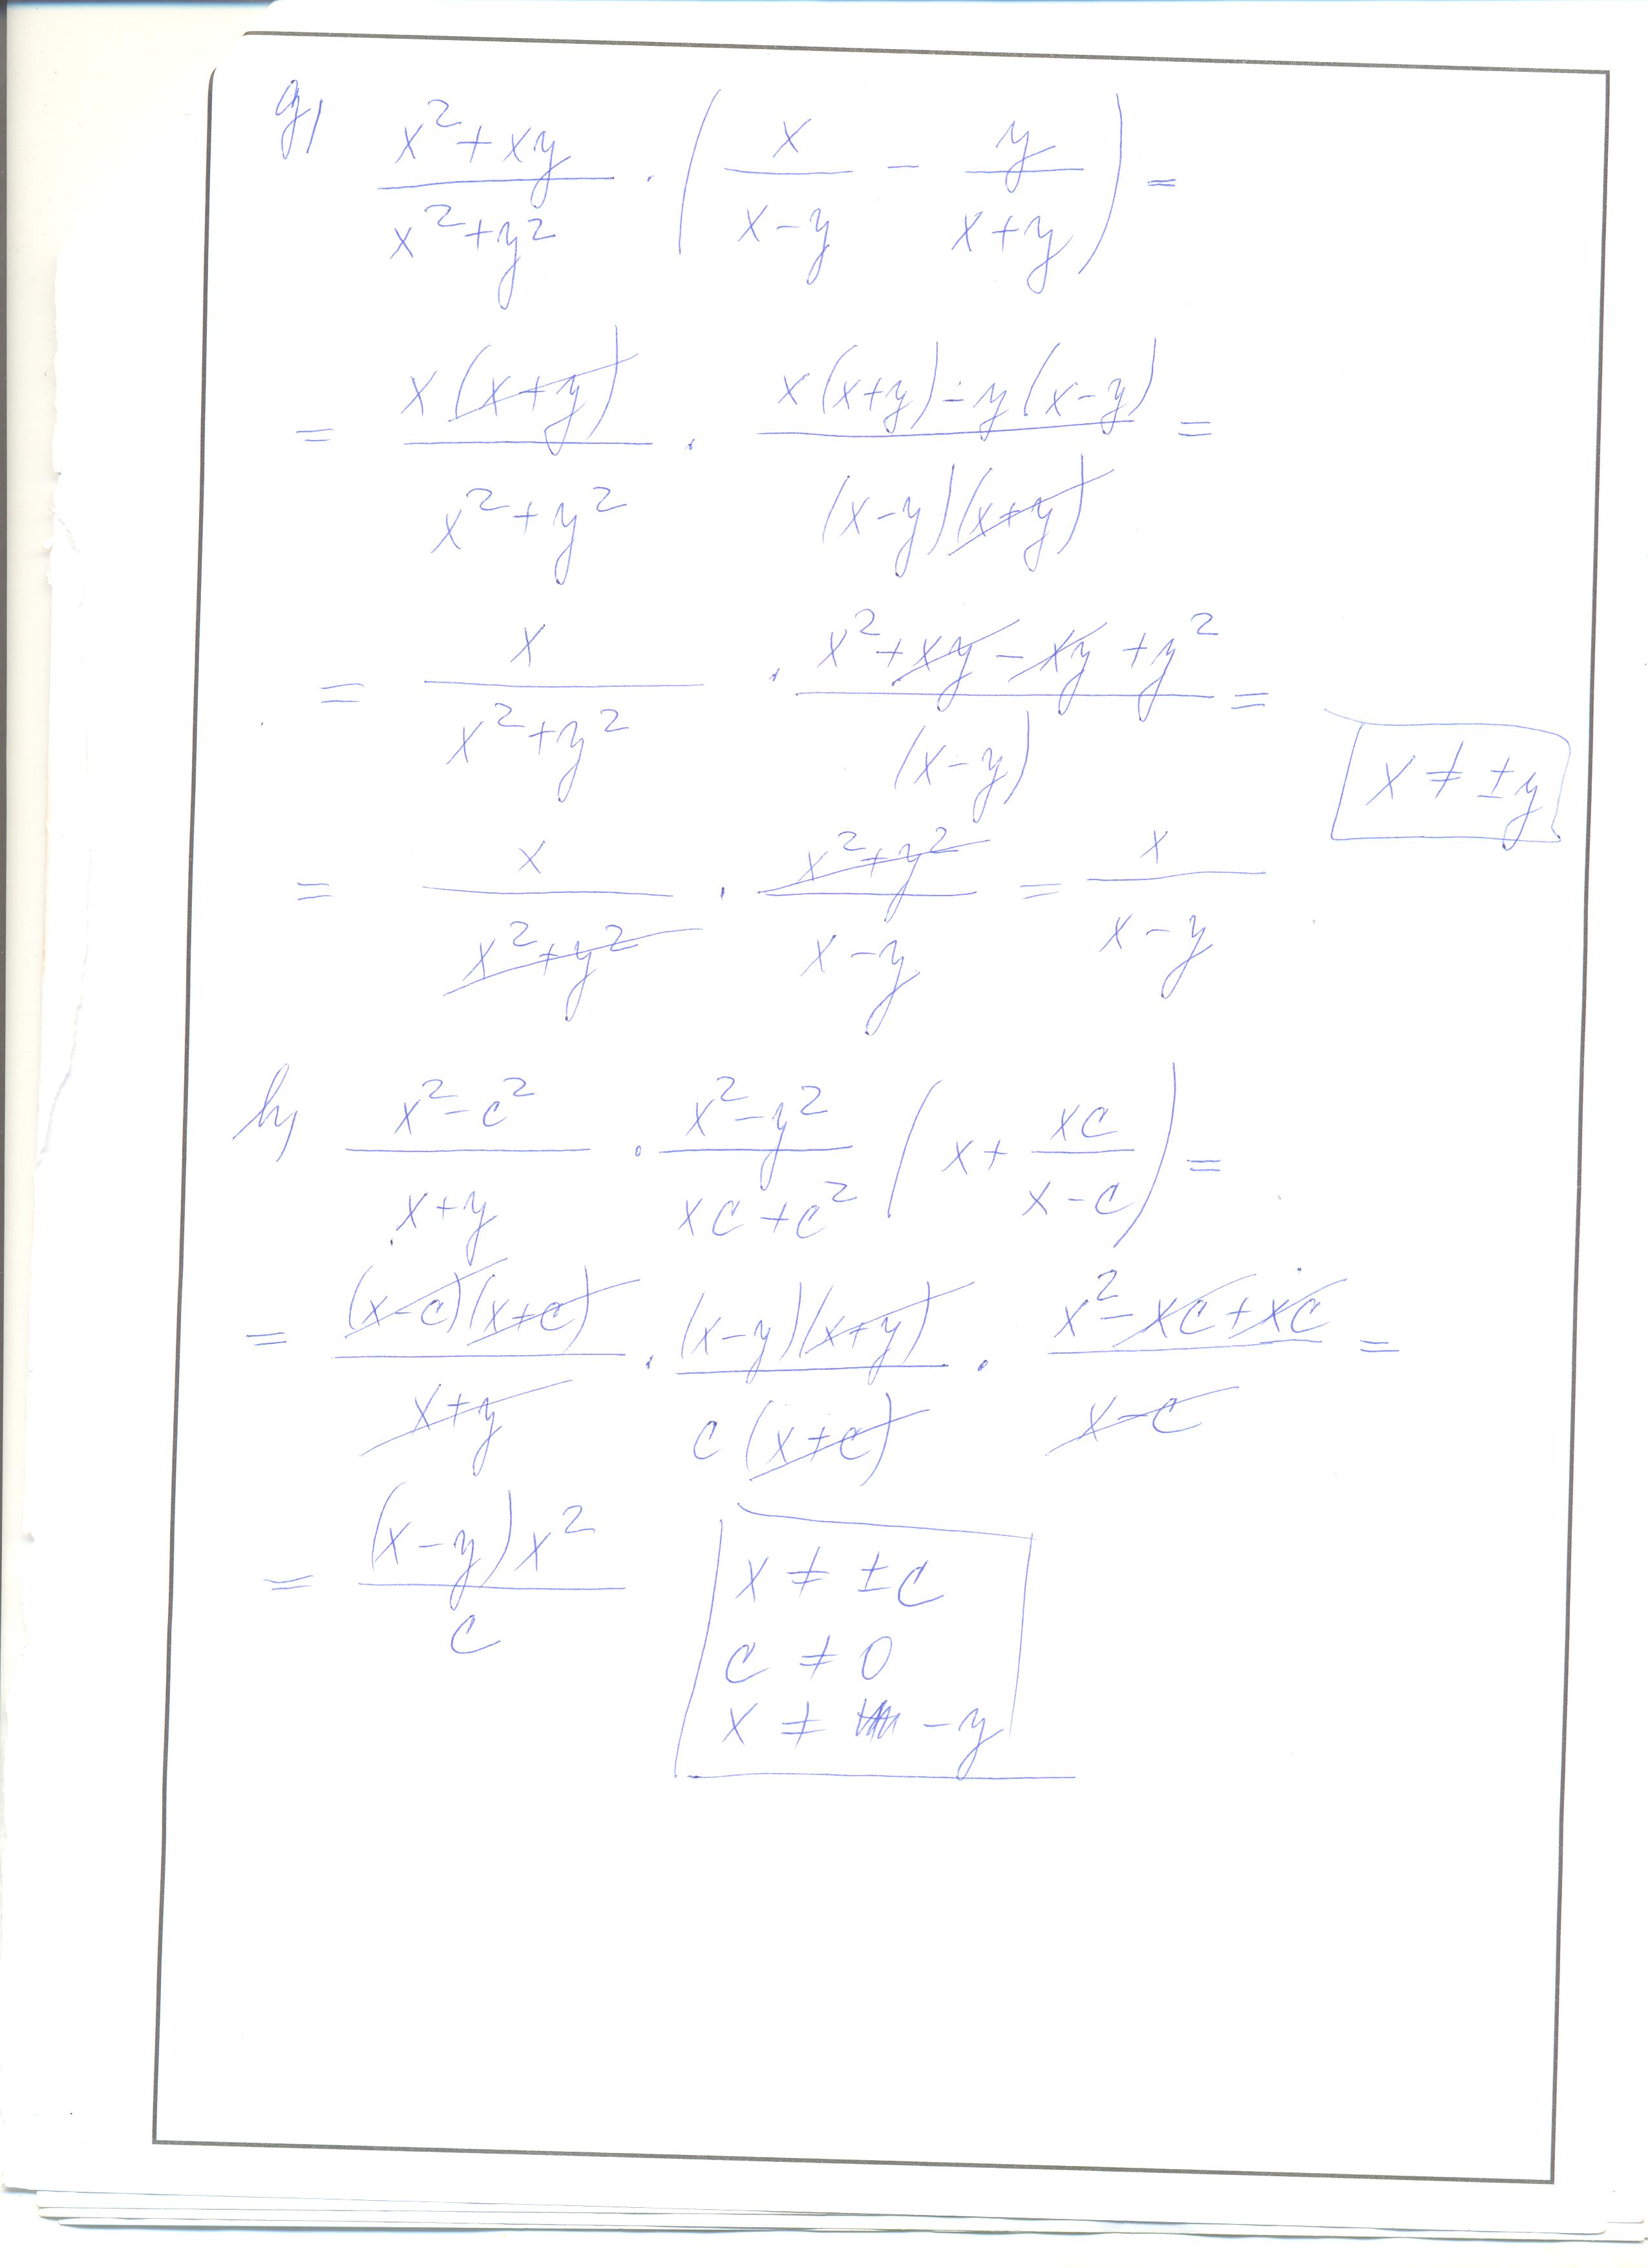 g) \frac{x^2+xy}{x^2+y^2} \cdot \left( \frac{x}{x-y} - \frac{y}{x+y} \right) =
= \frac{x(x+y)}{x^2+y^2} \cdot \frac{x(x+y)-y(x-y)}{(x-y)(x+y)} =
= \frac{x}{x^2+y^2} \cdot \frac{x^2+xy-xy+y^2}{(x-y)} =
x ≠ ±y
= \frac{x}{x^2+y^2} \cdot \frac{x^2+y^2}{x-y} = \frac{x}{x-y}
h) \frac{x^2-c^2}{x+y} \cdot \frac{x^2-y^2}{xc+c^2} \left( x+\frac{xc}{x-c} \right) =
= \frac{(x-c)(x+c)}{x+y} \cdot \frac{(x-y)(x+y)}{c(x+c)} \cdot \frac{x^2-xc+xc}{x-c} =
= \frac{(x-y)x^2}{c}
x ≠ ±c
c ≠ 0
x ≠ -y